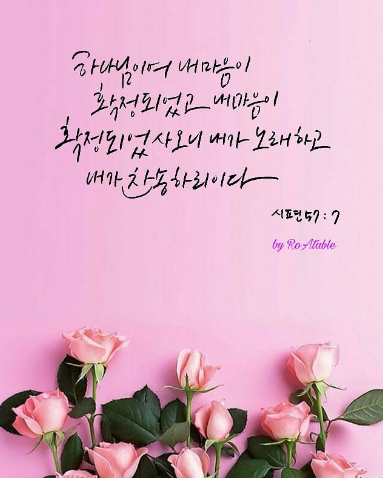 하나님이여 내 마음이
확정되었고 내 마음이
확정되었사오니 내가 노래하고
내가 찬송하리이다
시편 57:7
by RoAtable